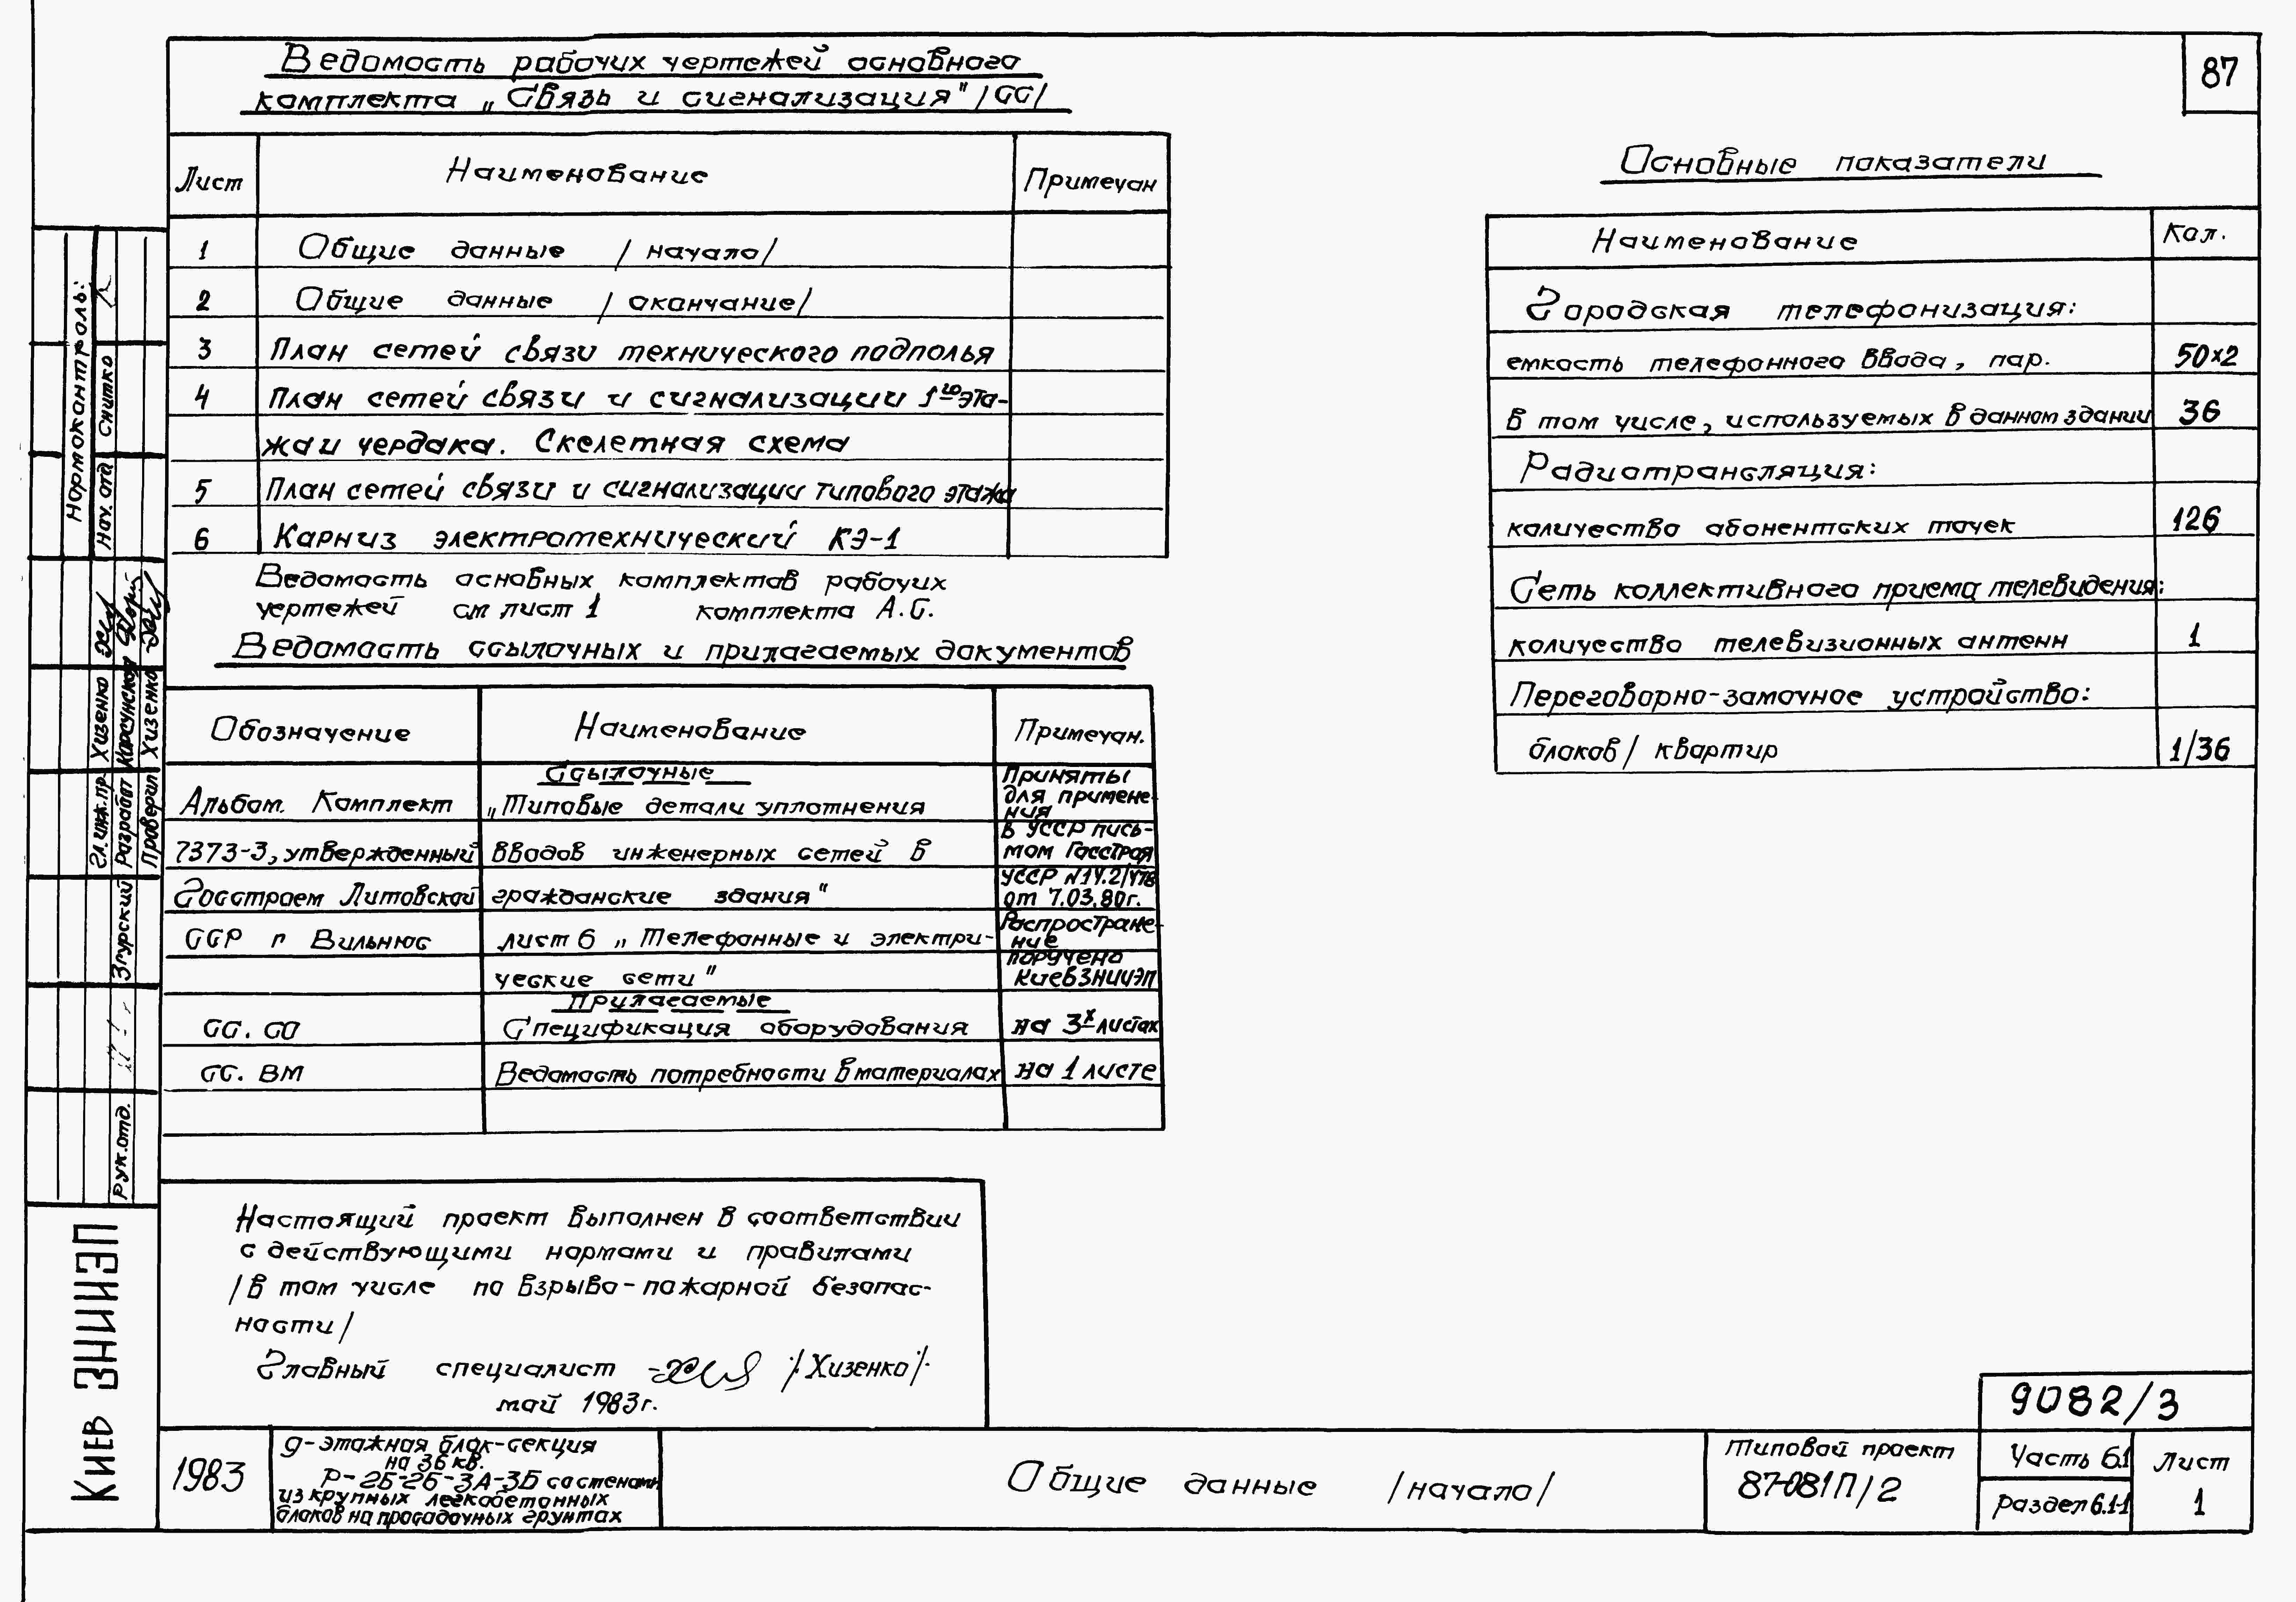 87
Ведомость рабочих чертежей основного
комплекта „Связь и сигнализация" /СС/
Лист Наименование Примечан
1 Общие данные /начало/
2 Общие данные /окончание/
3 План сетей связи технического подполья
4 План сетей связи и сигнализации 1го эта-
жа и чердака. Скелетная схема
5 План сетей связи и сигнализации типового этажа
6 Карниз электротехнический КЭ-1
Ведомость основных комплектов рабочих
чертежей см лист 1 комплекта А.С.
Ведомость ссылочных и прилагаемых документов
Обозначение Наименование Примечан.
Ссылочные
Альбом. Комплект „Типовые детали уплотнения Приняты для примене-ния
7373-3, утвержденный вводов инженерных сетей в в УССР пись-мом Госстроя
Госстроем Литовской гражданские здания" от 7.03.80г.
ССР г Вильнюс лист 6 „Телефонные и электри- Распростране-ние
ческие сети" поручено КиевЗНИИЭП
Прилагаемые
СС. СО Спецификация оборудования на 3х листах
СС. ВМ Ведомость потребности в материалах на 1 листе
Основные показатели
Наименование Кол.
Городская телефонизация:
емкость телефонного ввода, пар. 50×2
в том числе, используемых в данном здании 36
Радиотрансляция:
количество абонентских точек 126
Сеть коллективного приема телевидения:
количество телевизионных антенн 1
Переговорно-замочное устройство:
блоков/ квартир 1/36
Настоящий проект выполнен в соответствии
с действующими нормами и правилами
/в том числе по взрыво-пожарной безопас-
ности/
Главный специалист /Хизенко/
май 1983г.
Нормоконтроль:
Нач. отд Снитко
Гл. инж. пр. Хизенко
Разработ
Проверил Хизенко
Рук. отд. Згурский
Киев ЗНИИЕП
1983
9-этажная блок-секция
на 36 кв.
Р-2Б-2Б-3А-3Б со стенами
из крупных легкобетонных
блоков на просадочных грунтах
Общие данные /начало/
Типовой проект
87-081П/2
9082/3
Часть 6.1
Раздел 6.1-1
Лист
1